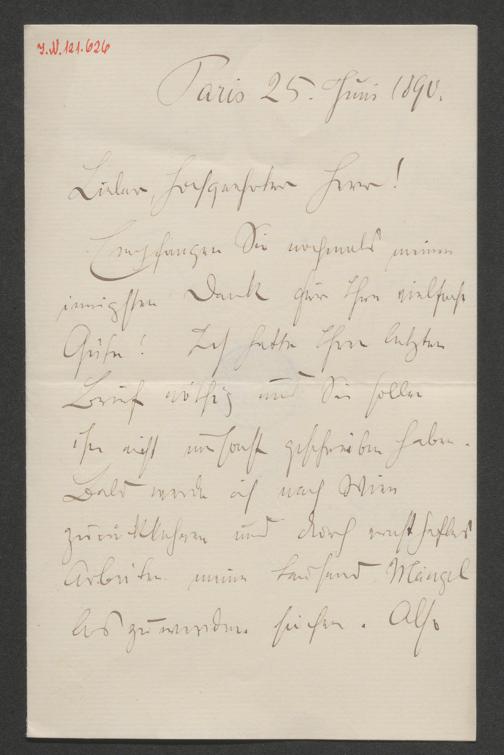 J.N. 121.626
Paris 25. Juni 1890.
Lieber, hochgeehrter Herr!
Empfangen Sie nochmals meinen
innigsten Dank für Ihre vielfache
Güte! Ich hatte Ihren letzten
Brief nöthig und Sie sollen
ihn nicht umsonst geschrieben haben.
Bald werde ich nach Wien
zurückkehren und durch ernsthaftes
Arbeiten meine tausend Mängel
los zu werden suchen. Also